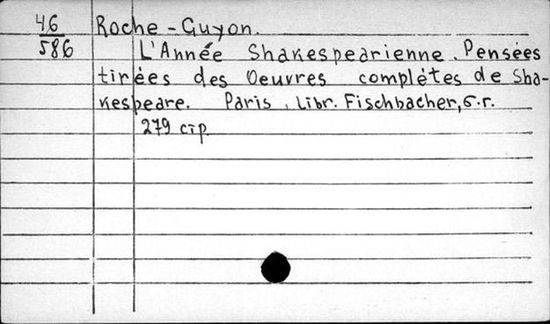 46 Roche-Guyon.
586 L'Année Shakespearienne. Pensées
tirées des Oeuvres complètes de Sha-
kespeare. Paris, Libr. Fischbacher, б.г.
279 стр.